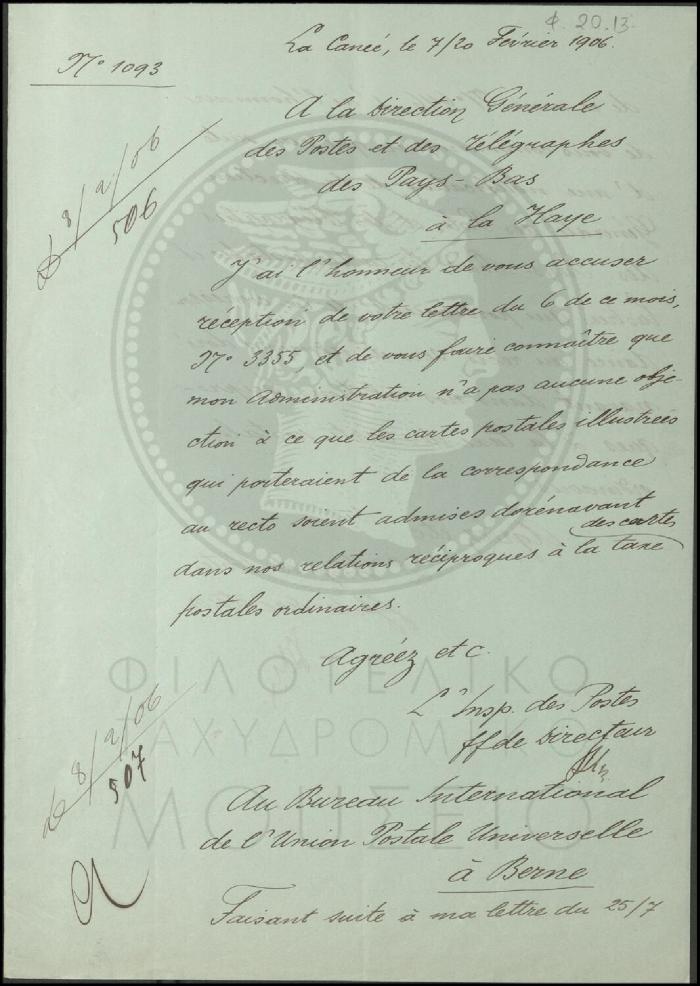 Φ. 20.13.
La Canée, le 7/20 Février 1906.
Nº 1093
A la Direction Générale
des Postes et des Télégraphes
des Pays-Bas
à la Haye
8/2/06
506
J'ai l'honneur de vous accuser
réception de votre lettre du 6 de ce mois,
Nº 3355, et de vous faire connaître que
mon Administration n'a pas aucune obje-
ction à ce que les cartes postales illustrées
qui porteraient de la correspondance
au recto soient admises dorénavant
dans nos relations réciproques à la taxe des cartes
postales ordinaires.
Agréez etc.
L'Insp. des Postes
ff de Directeur
8/2/06
507
Au Bureau International
de l'Union Postale Universelle
à Berne
Faisant suite à ma lettre du 25/7
ΦΙΛΟΤΕΛΙΚΟ
ΤΑΧΥΔΡΟΜΙΚΟ
ΜΟΥΣΕΙΟ